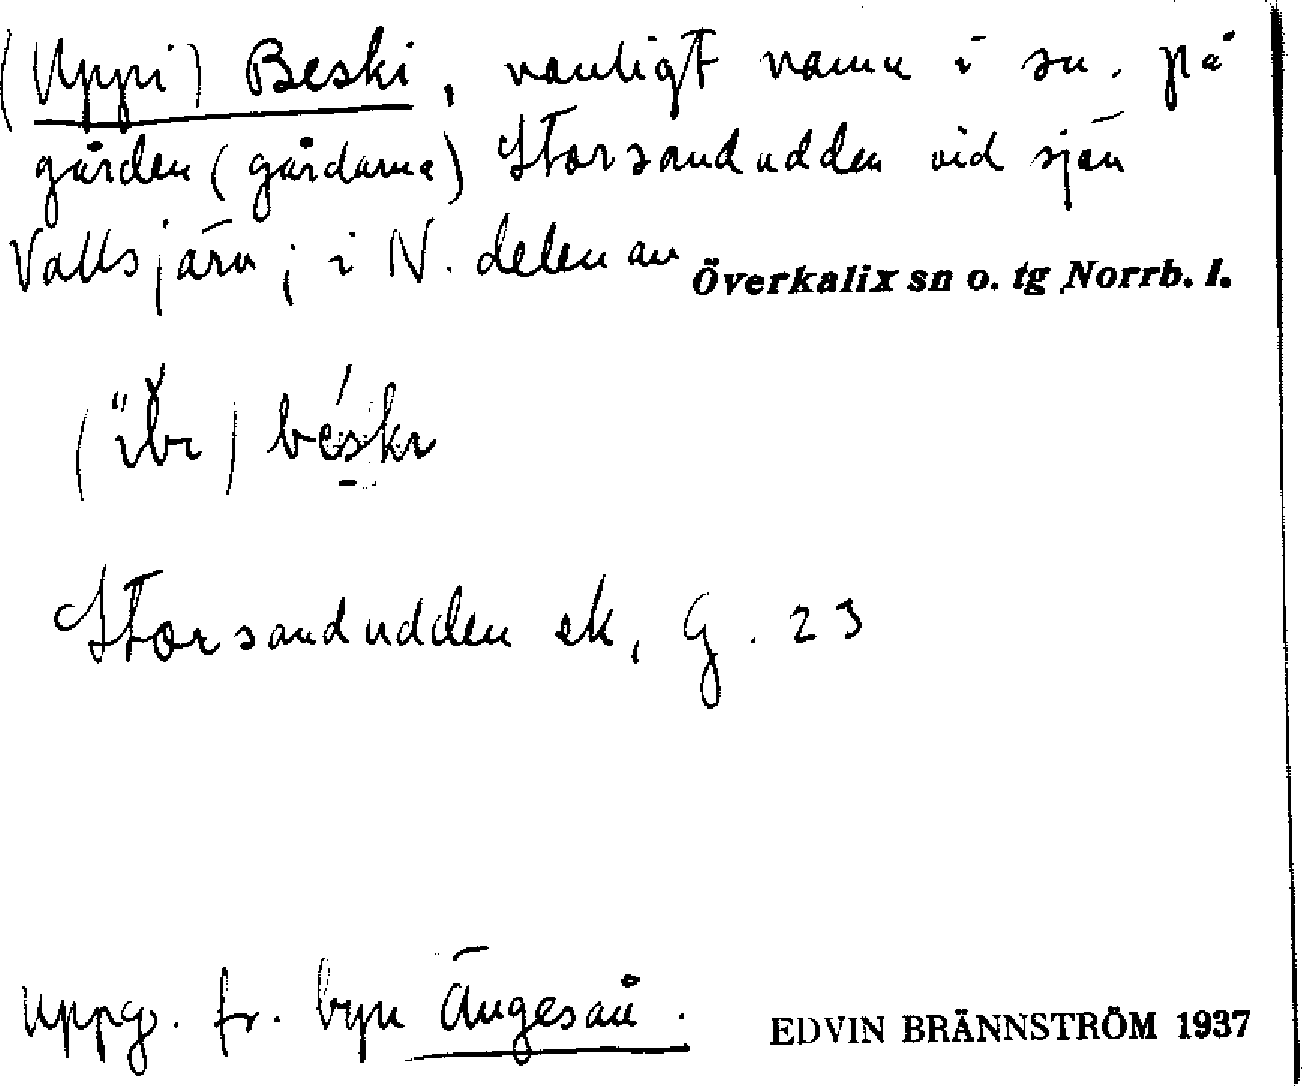 (Uppi) Beski, vanligt namn i sn. på
gården (gårdarna) Storsandudden vid sjön
Vallsjärv; i N. delen av Överkalix sn o. tg Norrb. l.
béskı
Storsandudden ek, G. 23
uppg. fr. byn Ängesån.
EDVIN BRÄNNSTRÖM 1937